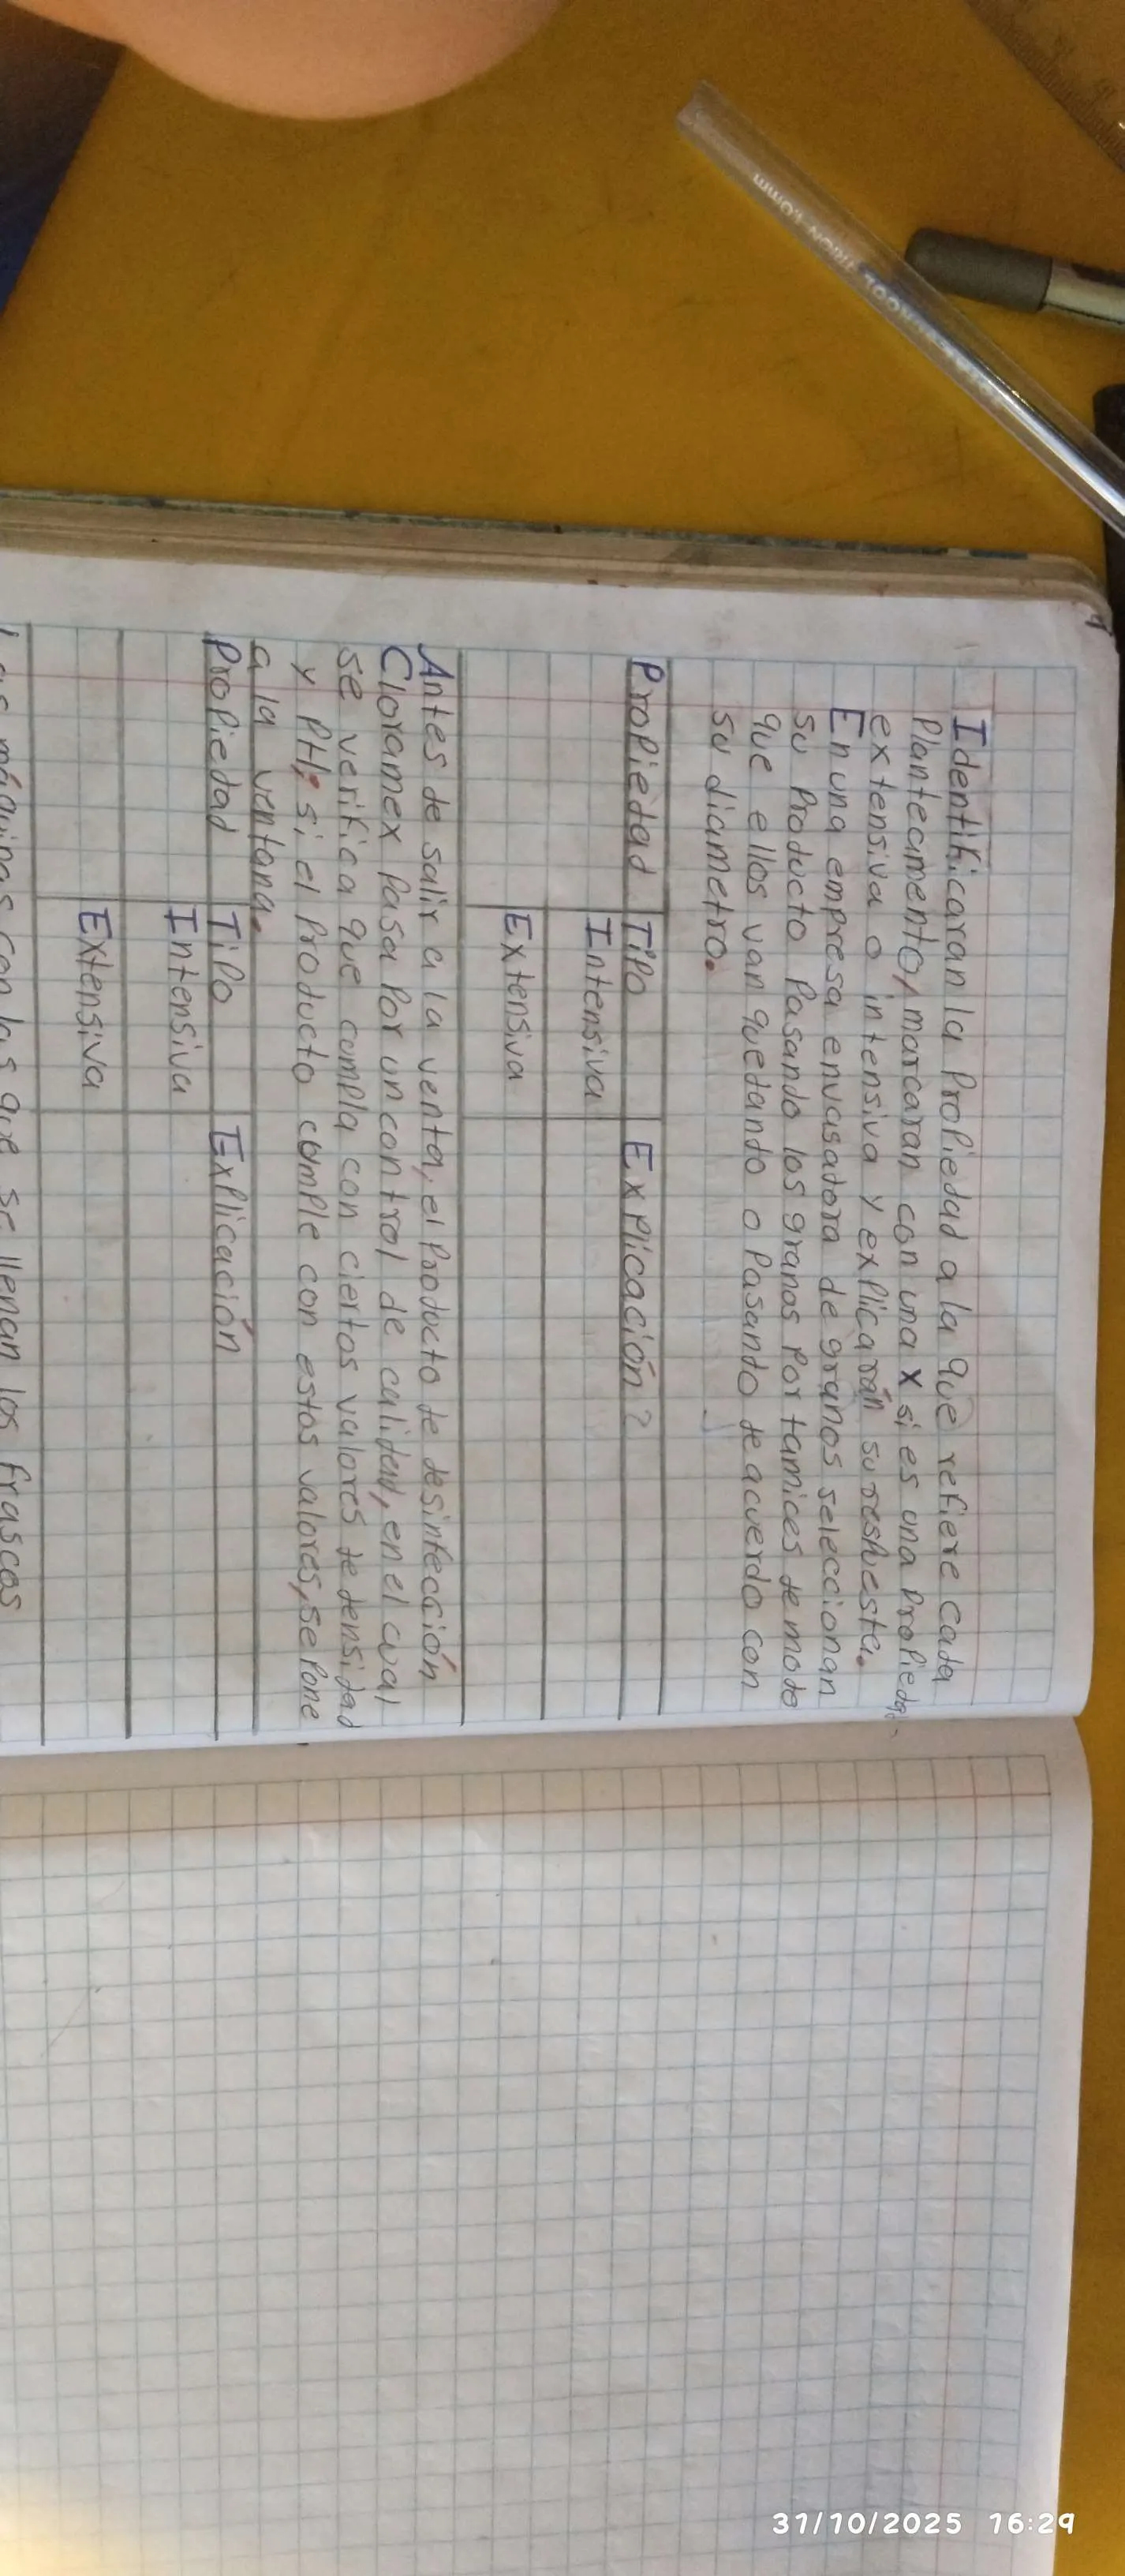 Identificaran la Propiedad a la que refiere cada
Planteamento, marcaran con una x si es una Propiedad
extensiva o intensiva y explicarán su respuesta.
En una empresa envasadora de granos seleccionan
su Producto Pasando los granos Por tamices de modo
que ellos van quedando o Pasando de acuerdo con
su diametro.
Propiedad Tipo Explicación?
Intensiva
Extensiva
Antes de salir a la venta, el Producto de desinfección
Cloramex Pasa Por un control de calidad, en el cual
se verifica que cumpla con ciertos valores de densidad
y PH; si el Producto cumple con estos valores, se Pone
a la ventana.
Propiedad Tipo Explicación
Intensiva
Extensiva
Las máquinas con las que se llenan los frascos
31/10/2025 16:29